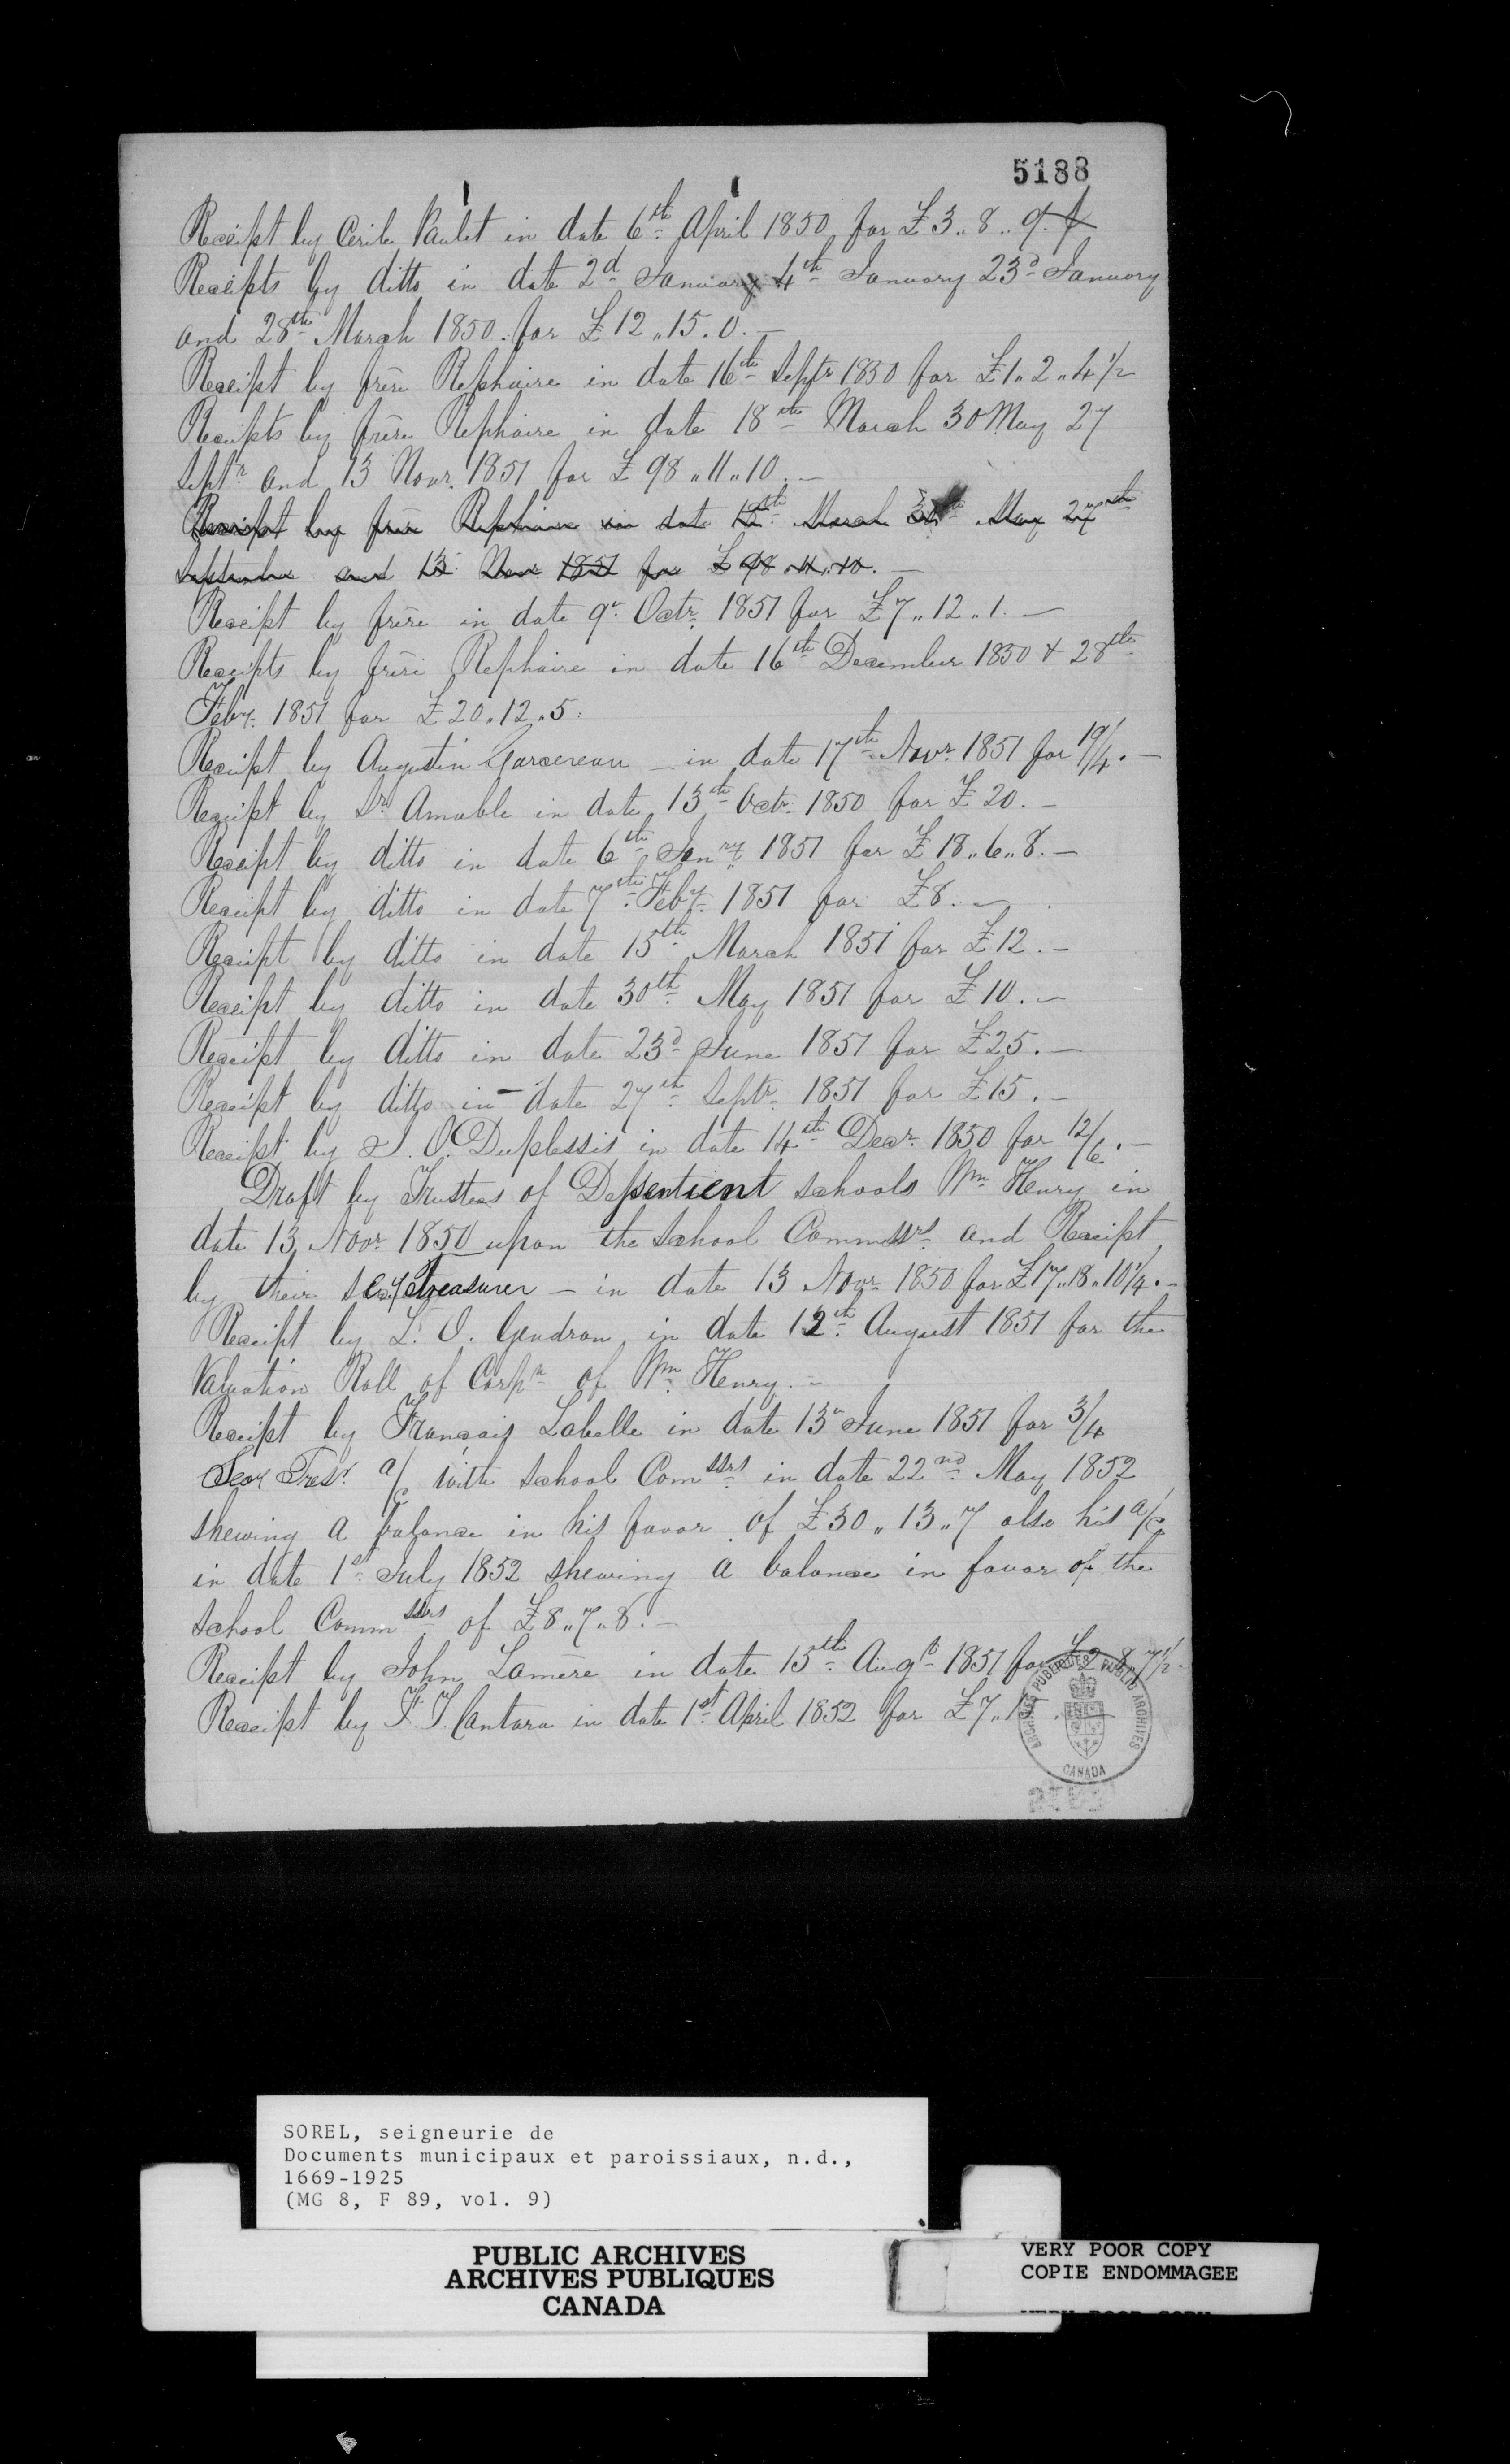 5188
Receipt by Cerile Paulet in date 6th April 1850 for £3..8..9.
Receipts by ditto in date 2d January 4th January 23d January
and 28th March 1850 for £12..15.0.—
Receipt by frère Rephaire in date 16th Septr 1850 for £1..2..4½
Receipts by frère Rephaire in date 18th March 30 May 27
Septr and 13 Novr. 1851 for £98..11..10.—
Receipt by frère Rephaire in date 15th March 30th May 27th
September and 13 Novr 1851 for £98..11..10.—
Receipt by frère in date 9r Octr 1851 for £7..12..1.—
Receipts by frère Rephaire in date 16th December 1850 & 28th
Feby. 1851 for £20..12..5.
Receipt by Augustin Garcereau — in date 17th Novr 1851 for 19/4.—
Receipt by Sr Amable in date 13th Octr 1850 for £20.—
Receipt by ditto in date 6th Janry 1851 for £18..6..8.—
Receipt by ditto in date 7th Feby. 1851 for £8.—
Receipt by ditto in date 15th March 1851 for £12.—
Receipt by ditto in date 30th May 1851 for £10.—
Receipt by ditto in date 23d June 1851 for £25.—
Receipt by ditto in date 27th Septr 1851 for £15.—
Receipt by O. Duplessis in date 14th Decr. 1850 for 12/6.—
Draft by Trustees of Dessentient schools Wm Henry in
date 13 Novr 1850 upon the School Commssrs and Receipt
by their Secy treasurer — in date 13 Novr 1850 for £17..18..10¼.—
Receipt by L. O. Gendron in date 12th August 1851 for the
Valuation Roll of Corpn of Wm Henry.—
Receipt by Français Labelle in date 13 June 1851 for 3/4
Secy Tresr. a/c with School Comssrs in date 22nd May 1852
shewing a balance in his favor of £30..13..7 also his a/c
in date 1st July 1852 shewing a balance in favor of the
School Commssrs of £8..7..8.—
Receipt by John Lamère in date 15th Augt 1851 for £2..8..7½.
Receipt by F. J. Cantara in date 1st April 1852 for £7..15.—
ARCHIVES PUBLIQUES PUBLIC ARCHIVES
CANADA
SOREL, seigneurie de
Documents municipaux et paroissiaux, n.d.,
1669-1925
(MG 8, F 89, vol. 9)
PUBLIC ARCHIVES
ARCHIVES PUBLIQUES
CANADA
VERY POOR COPY
COPIE ENDOMMAGEE
VERY POOR COPY